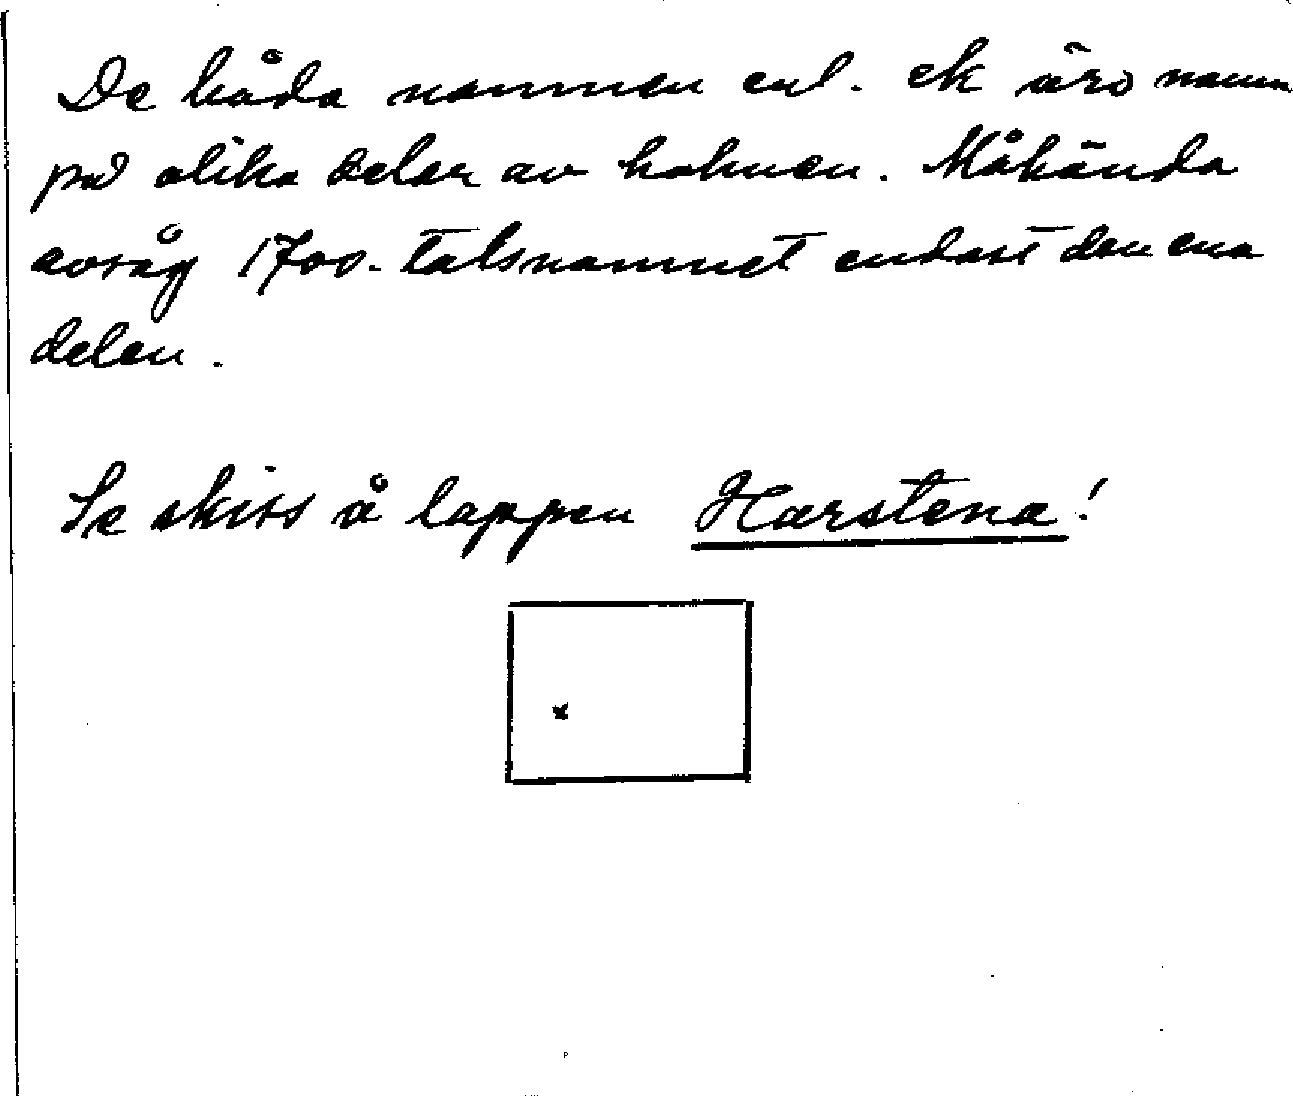 De båda namnen enl. ek äro namn
på olika delar av holmen. Måhända
avsåg 1700-talsnamnet endast den ena
delen.
Se skiss å lappen Harstena!
x